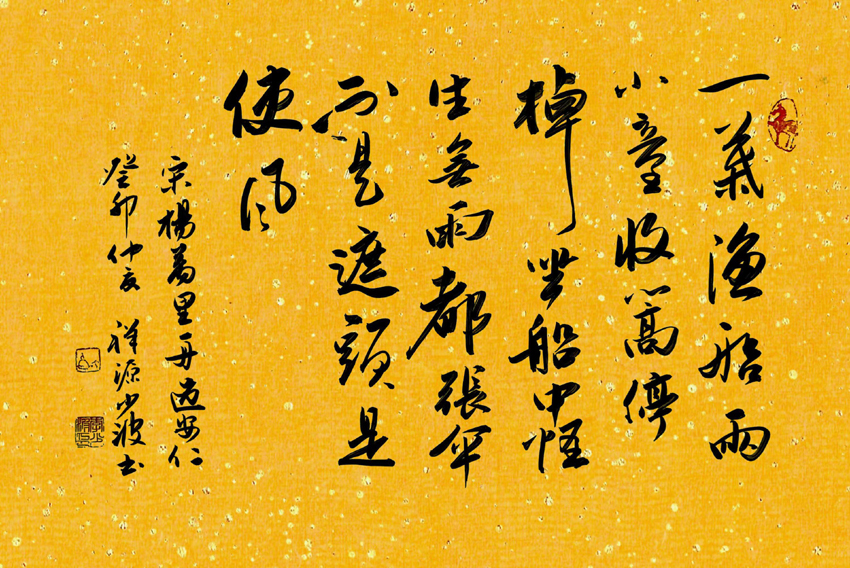 一葉漁船兩
小童收篙停
棹坐船中怪
生無雨都張傘
不是遮頭是
使風
宋楊萬里舟過安仁
癸卯仲夏 祥源少波书